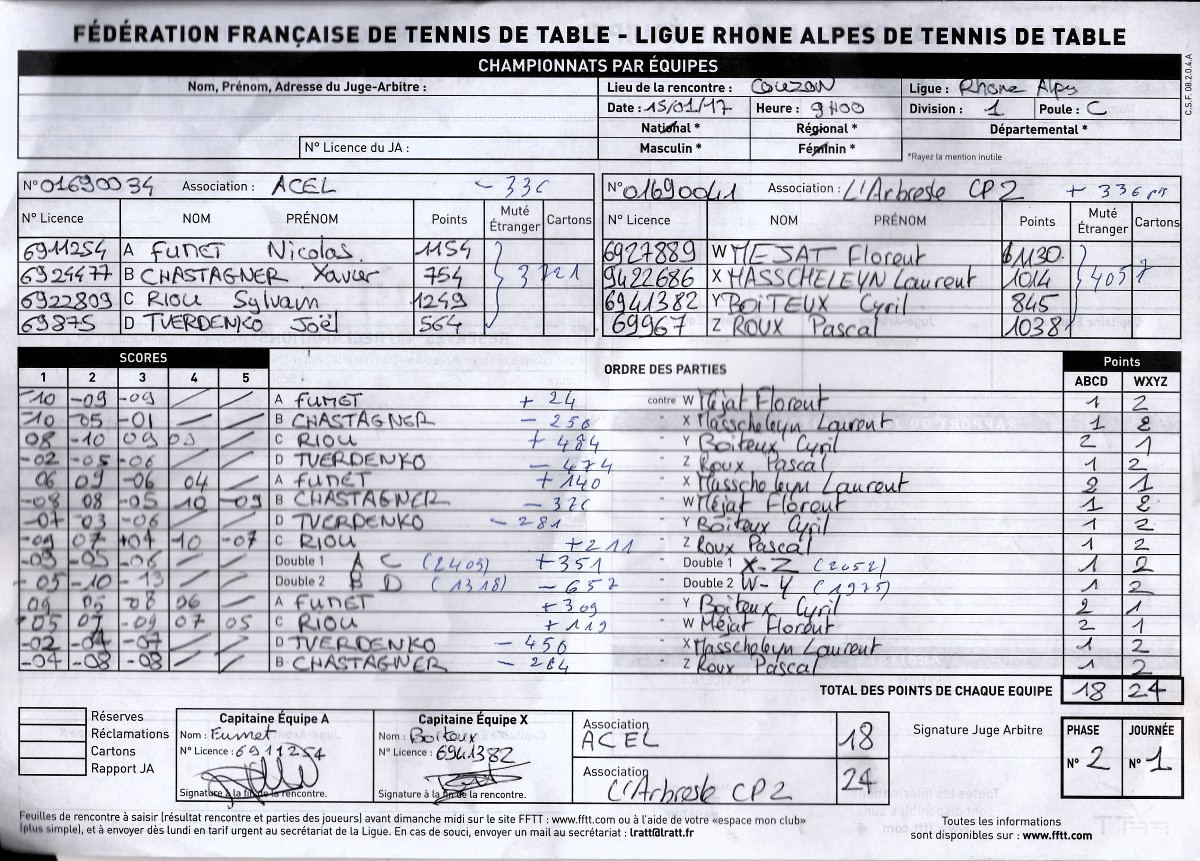 FÉDÉRATION FRANÇAISE DE TENNIS DE TABLE - LIGUE RHONE ALPES DE TENNIS DE TABLE
CHAMPIONNATS PAR ÉQUIPES
C.S.F. 08.2.0.4.A
Nom, Prénom, Adresse du Juge-Arbitre :
N° Licence du JA :
Lieu de la rencontre : COUZON
Ligue : Rhone Alpes
Date : 15/01/17 Heure : 9H00 Division : 1 Poule : C
National * Régional * Départemental *
Masculin * Féminin * *Rayez la mention inutile
N° 01690034 Association : ACEL - 336
N° 01690041 Association : L'Arbresle CP2 + 336 pts
N° Licence NOM PRÉNOM Points Muté Étranger Cartons
N° Licence NOM PRÉNOM Points Muté Étranger Cartons
6911254 A FUMET Nicolas 1154
6924477 B CHASTAGNER Xavier 754 3721
6922809 C RIOU Sylvain 1249
69875 D TVERDENKO Joël 564
6927889 W MEJAT Florent 1130
9422686 X MASSCHELEYN Laurent 1014 4057
6941382 Y BOITEUX Cyril 845
69967 Z ROUX Pascal 1038
SCORES ORDRE DES PARTIES Points
1 2 3 4 5 ABCD WXYZ
-10 -09 -09 A FUMET + 24 contre W Méjat Florent 1 2
-10 -05 -01 B CHASTAGNER - 256 " X Masscheleyn Laurent 1 2
08 -10 09 C RIOU + 484 " Y Boiteux Cyril 2 1
-02 -05 -06 D TVERDENKO - 474 " Z Roux Pascal 1 2
06 09 -06 04 A FUMET + 140 " X Masscheleyn Laurent 2 1
-08 08 -05 10 -09 B CHASTAGNER - 376 " W Méjat Florent 1 2
-07 -03 -06 D TVERDENKO - 281 " Y Boiteux Cyril 1 2
-09 07 +04 10 -07 C RIOU + 211 " Z Roux Pascal 1 2
-09 -05 -06 Double 1 A C (2403) + 351 " Double 1 X-Z (2052) 1 2
-05 -10 -13 Double 2 B D (1318) - 657 " Double 2 W-Y (1975) 1 2
09 05 08 06 A FUMET + 309 " Y Boiteux Cyril 2 1
-05 07 -09 07 05 C RIOU + 119 " W Méjat Florent 2 1
-02 -04 -07 D TVERDENKO - 450 " X Masscheleyn Laurent 1 2
-04 -08 -08 B CHASTAGNER - 284 " Z Roux Pascal 1 2
TOTAL DES POINTS DE CHAQUE EQUIPE 18 24
Réserves
Réclamations
Cartons
Rapport JA
Capitaine Équipe A
Nom : Fumet
N° Licence : 6911254
Signature à la fin de la rencontre.
Capitaine Équipe X
Nom : Boiteux
N° Licence : 6941382
Signature à la fin de la rencontre.
Association
ACEL 18
Association
L'Arbresle CP2 24
Signature Juge Arbitre
PHASE JOURNÉE
N° 2 N° 1
Feuilles de rencontre à saisir (résultat rencontre et parties des joueurs) avant dimanche midi sur le site FFTT : www.fftt.com ou à l'aide de votre «espace mon club»
(plus simple), et à envoyer dès lundi en tarif urgent au secrétariat de la Ligue. En cas de souci, envoyer un mail au secrétariat : lratt@lratt.fr
Toutes les informations
sont disponibles sur : www.fftt.com